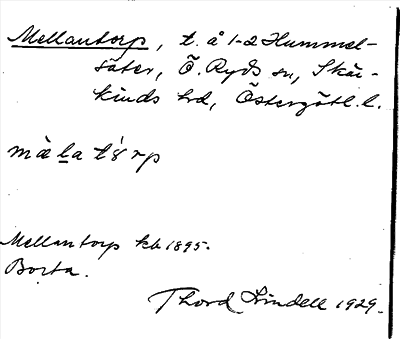 Mellantorp, t. å 1-2 Hummel-
säter, Ö. Ryds sn, Skär-
kinds hd, Östergötl. l.
Mellantorp kb 1895.
Borta.
Thord Lindell 1929.